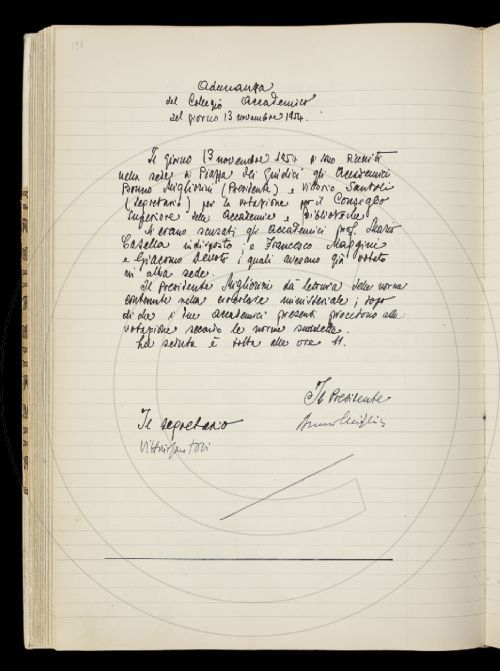 Adunanza
del Collegio Accademico
del giorno 13 novembre 1954.
Il giorno 13 novembre 1954 si sono riuniti
nella sede di Piazza dei Giudici gli Accademici
Bruno Migliorini (Presidente) e Vittorio Santoli
(segretario) per la votazione per il Consiglio
Superiore delle Accademie e Biblioteche.
Si erano scusati gli Accademici prof. Mario
Casella indisposto; e Francesco Maggini
e Giacomo Devoto i quali avevano già votato
in altra sede.
Il Presidente Migliorini dà lettura delle norme
contenute nella circolare ministeriale; dopo
di che i due accademici presenti procedono alla
votazione secondo le norme suddette.
La seduta è tolta alle ore 11.
Il Presidente
Il segretario
Bruno Migliorini
Vittorio Santoli